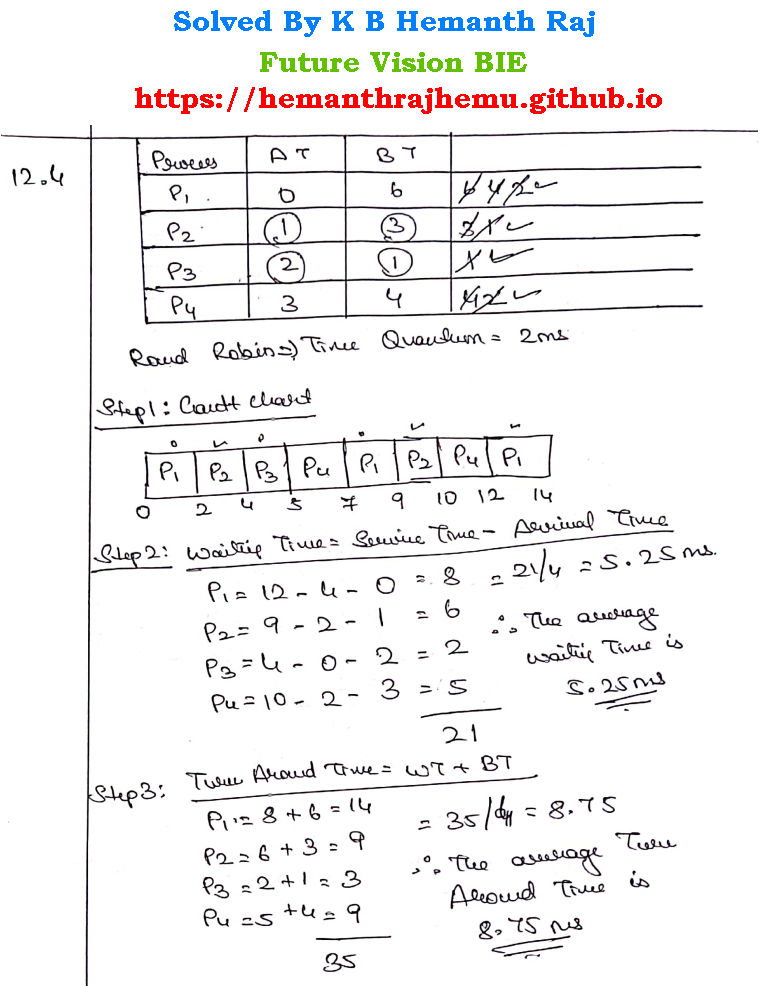 Solved By K B Hemanth Raj
Future Vision BIE
https://hemanthrajhemu.github.io
12.4
Process AT BT
P1 0 6 6 4 2 ✓
P2 1 3 3 1 ✓
P3 2 1 1 ✓
P4 3 4 4 2 ✓
Round Robin => Time Quantum = 2ms
Step1: Gantt chart
P1 P2 P3 P4 P1 P2 P4 P1
0 2 4 5 7 9 10 12 14
Step2: Waiting Time = Service Time - Arrival Time
P1 = 12 - 4 - 0 = 8 = 21/4 = 5.25 ms.
P2 = 9 - 2 - 1 = 6 ∴ The average
P3 = 4 - 0 - 2 = 2 waiting Time is
P4 = 10 - 2 - 3 = 5 5.25 ms
21
Step3: Turn Around Time = WT + BT
P1 = 8 + 6 = 14 = 35/4 = 8.75
P2 = 6 + 3 = 9 ∴ The average Turn
P3 = 2 + 1 = 3 Around Time is
P4 = 5 + 4 = 9 8.75 ms
35